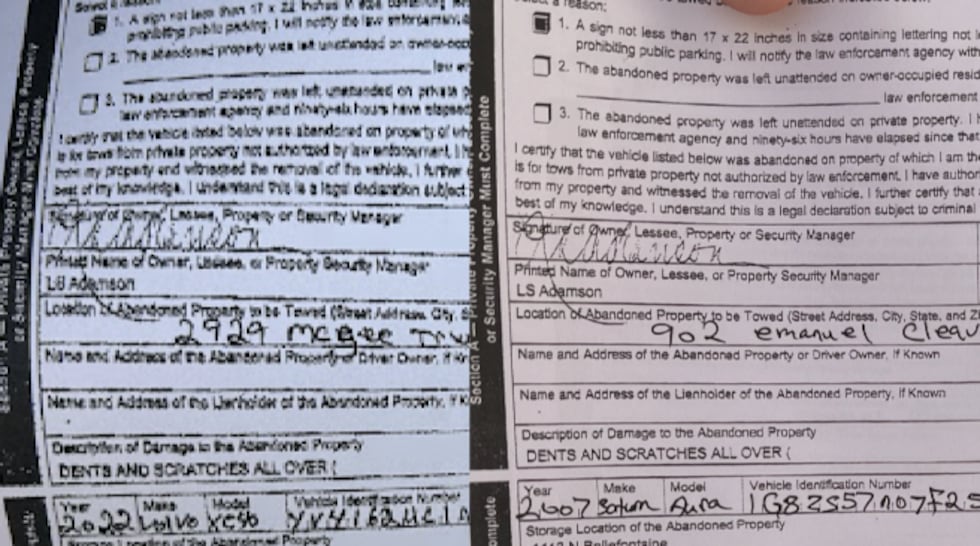 Select a reason:
1. A sign not less than 17 x 22 inches in size containing
prohibiting public parking. I will notify the law enforcement
2. The abandoned property was left unattended on owner-occ
law en
3. The abandoned property was left unattended on private p
law enforcement agency and ninety-six hours have elapsed
I certify that the vehicle listed below was abandoned on property of wh
is for tows from private property not authorized by law enforcement. I h
from my property and witnessed the removal of the vehicle. I further
best of my knowledge. I understand this is a legal declaration subject
Signature of Owner, Lessee, Property or Security Manager
Printed Name of Owner, Lessee, or Property Security Manager
LS Adamson
Location of Abandoned Property to be Towed (Street Address, City, S
2929 McGee
Name and Address of the Abandoned Property or Driver Owner, if Kn
Name and Address of the Lienholder of the Abandoned Property, if K
Description of Damage to the Abandoned Property
DENTS AND SCRATCHES ALL OVER (
Year Make Model Vehicle Identification Number
2022 Volvo
Storage Location of the Abandoned Property
or Security Manager Must Complete
reason:
1. A sign not less than 17 x 22 inches in size containing lettering not l
prohibiting public parking. I will notify the law enforcement agency with
2. The abandoned property was left unattended on owner-occupied resid
law enforcement
3. The abandoned property was left unattended on private property. I h
law enforcement agency and ninety-six hours have elapsed since that
I certify that the vehicle listed below was abandoned on property of which I am the
is for tows from private property not authorized by law enforcement. I have author
from my property and witnessed the removal of the vehicle. I further certify that
best of my knowledge. I understand this is a legal declaration subject to criminal
Signature of Owner, Lessee, Property or Security Manager
Printed Name of Owner, Lessee, or Property Security Manager
LS Adamson
Location of Abandoned Property to be Towed (Street Address, City, State, and Zi
902 emanuel Cleav
Name and Address of the Abandoned Property or Driver Owner, If Known
Name and Address of the Lienholder of the Abandoned Property, If Known
Description of Damage to the Abandoned Property
DENTS AND SCRATCHES ALL OVER (
Year Make Model Vehicle Identification Number
2007 Saturn Aura 1G8ZS57N07F25
Storage Location of the Abandoned Property
Section A –
or Security Manager Must Complete
omplete